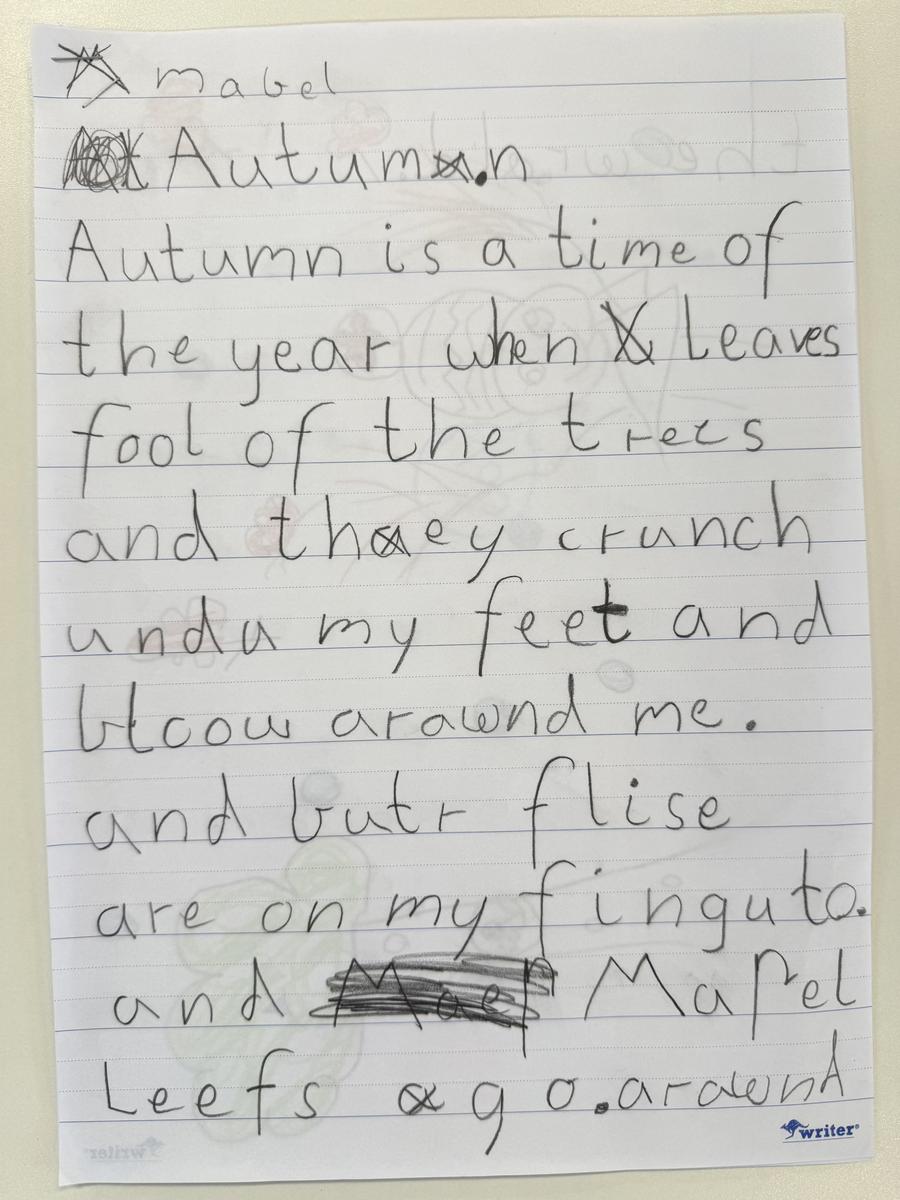 mabel
Autum.n
Autumn is a time of
the year when Leaves
fool of the trees
and thaey crunch
unda my feet and
blcow arawnd me.
and butr flise
are on my finguto.
and Mapel
Leefs go.arawnd
writer